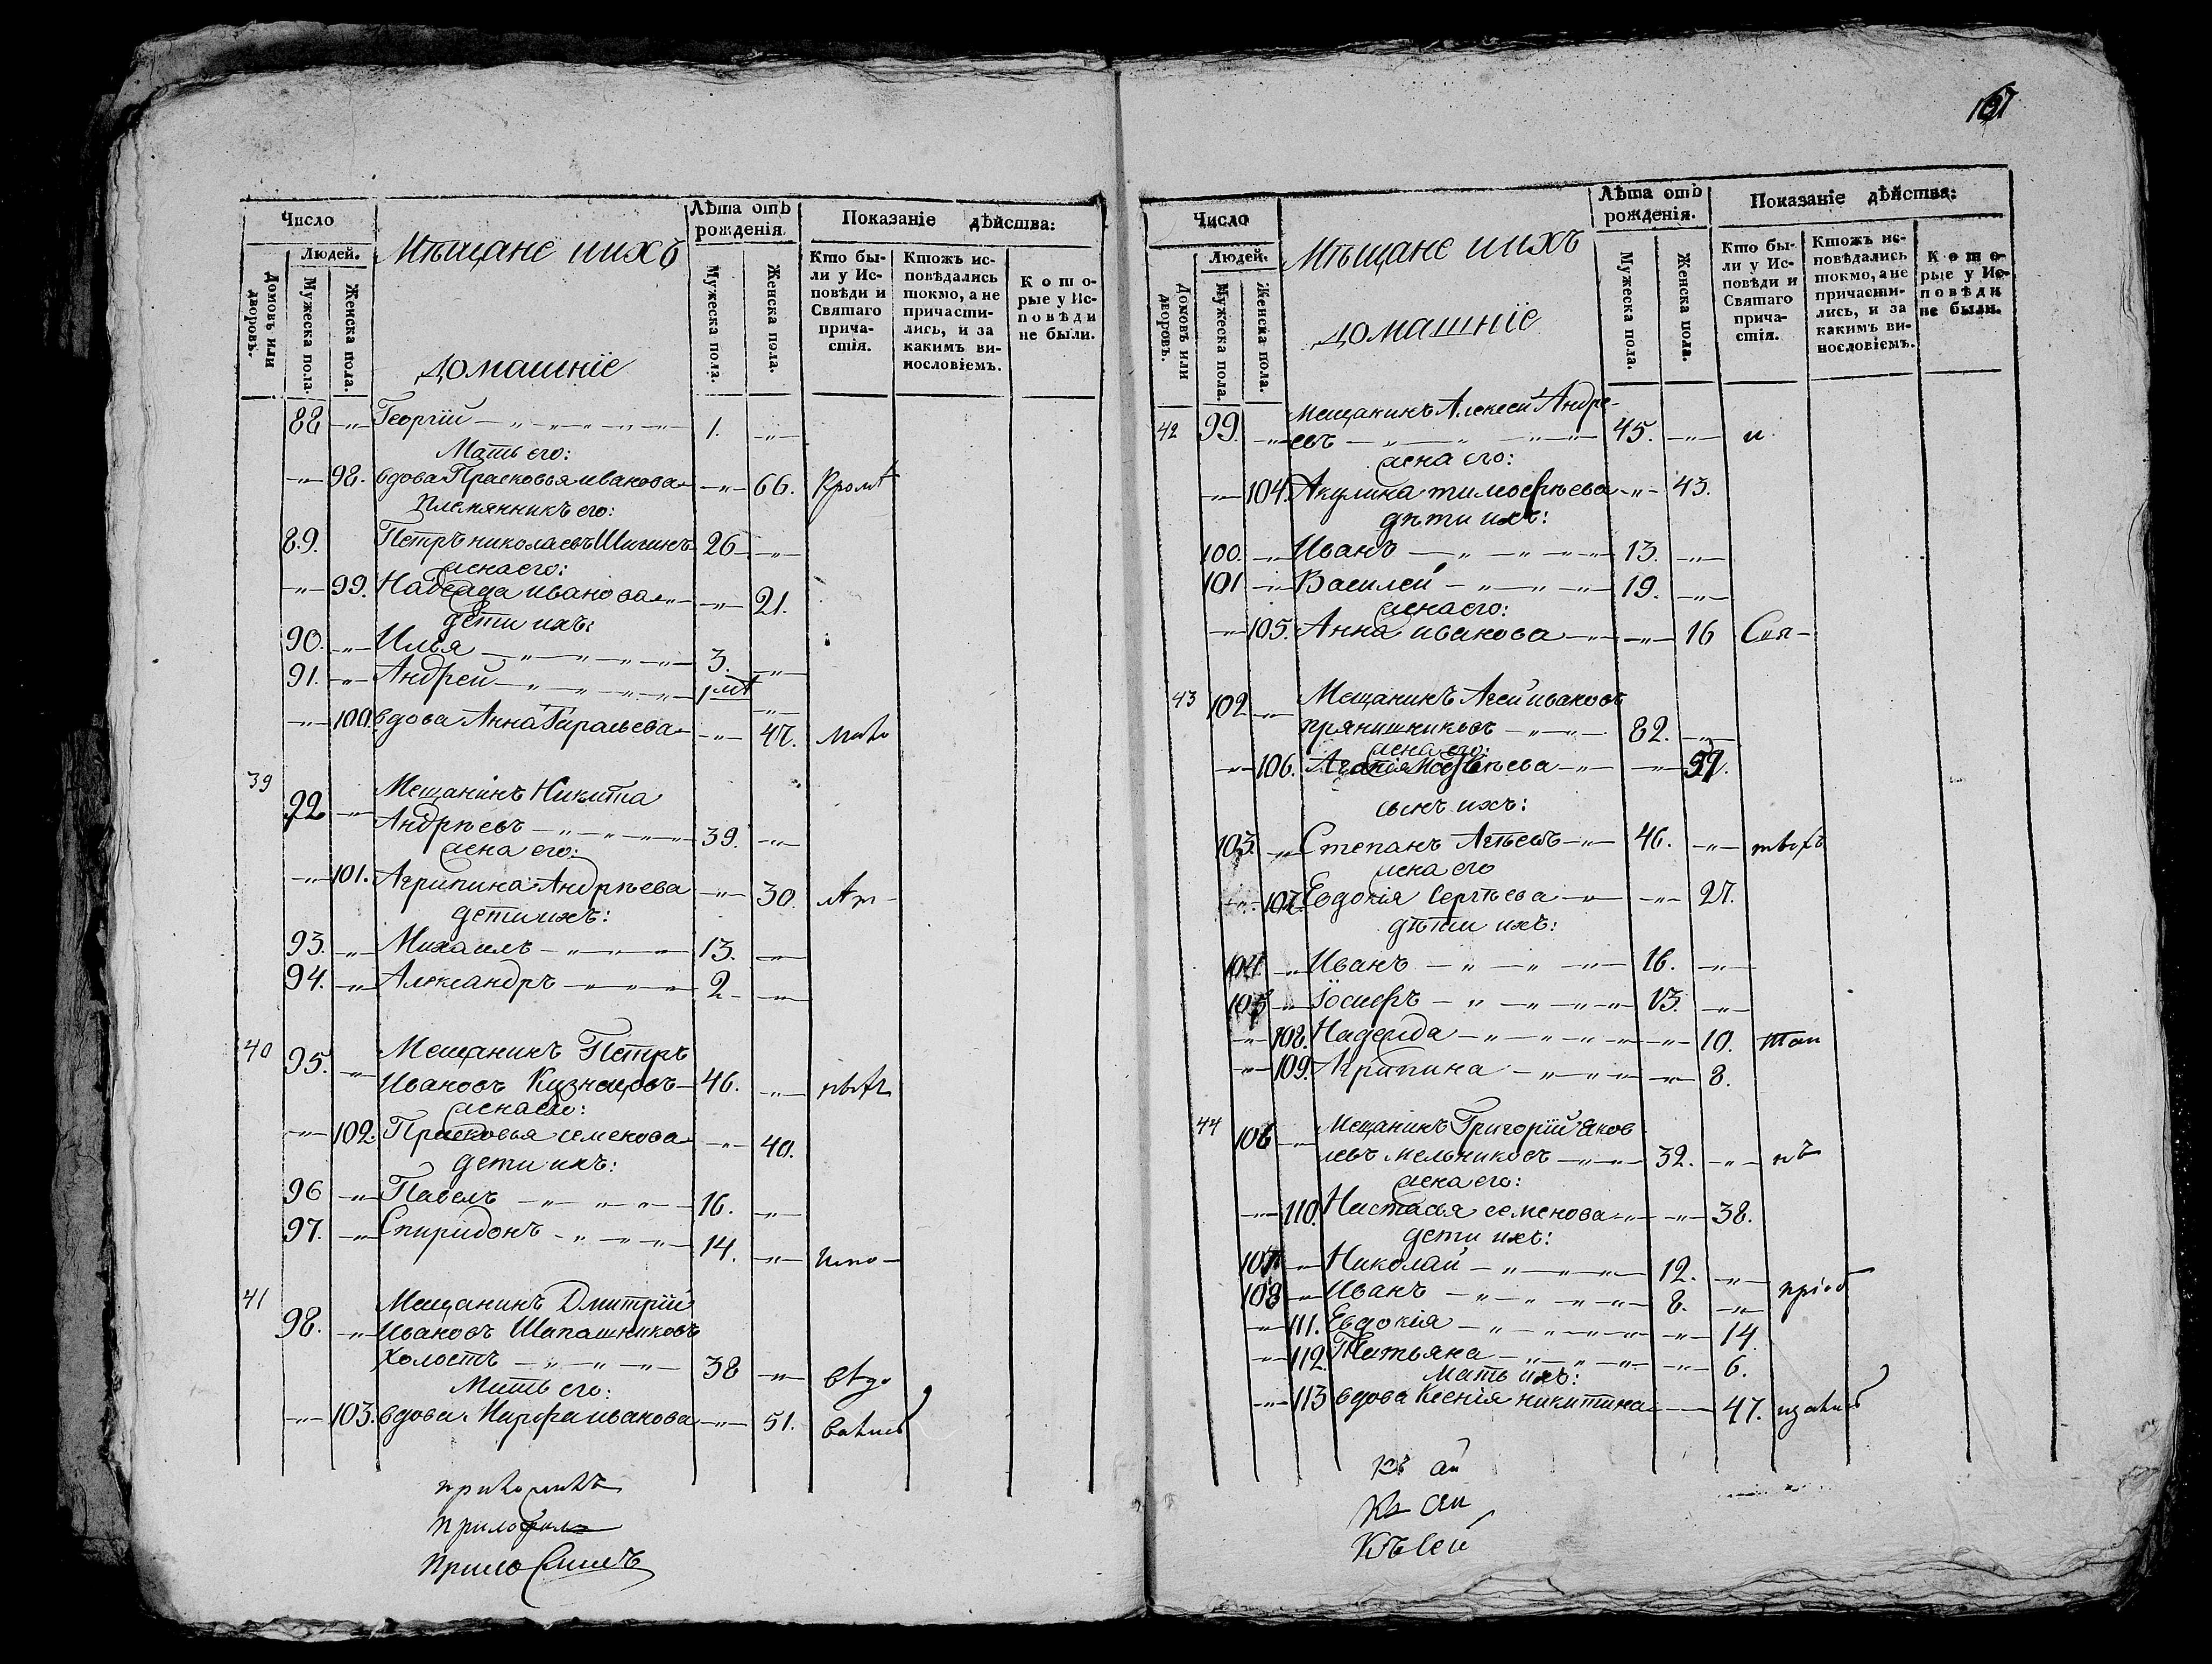 Число
Людей.
Домовъ или дворовъ.
Мужеска пола.
Женска пола.
Мѣщане и ихъ
домашніе
Лѣта отъ рожденія
Мужеска пола.
Женска пола.
Показаніе дѣйства:
Кто были у Исповѣди и Святаго причастія.
Ктожъ исповѣдались токмо, а не причастились, и за какимъ винословіемъ.
Которые у Исповѣди не были.
88 Георгій 1.
Мать его:
98. вдова Прасковья иванова 66.
Племянникъ его:
89. Петръ николаевъ 26
жена его:
99. иванова 21.
дети ихъ:
90. Илья 3.
91. Андрей
100. вдова Анна 47.
39
92 Мещанинъ Никита
Андрѣевъ 39.
жена его:
101. Агрипина Андрѣева 30.
дети ихъ:
93. Михаилъ 13.
94. Александръ 2
40
95. Мещанинъ Петръ
Ивановъ Кузнецовъ 46.
жена его:
102. Прасковья семенова 40.
дети ихъ:
96 Павелъ 16.
97. Спиридонъ 14.
41
98. Мещанинъ Дмитрій
Ивановъ Шапашниковъ
холостъ 38
Мать его:
103. вдова Марфа иванова 51.
167
Число
Людей.
Домовъ или дворовъ.
Мужеска пола.
Женска пола.
Мѣщане и ихъ
домашніе
Лѣта отъ рожденія.
Мужеска пола.
Женска пола.
Показаніе дѣйства:
Кто были у Исповѣди и Святаго причастія.
Ктожъ исповѣдались токмо, а не причастились, и за какимъ винословіемъ.
Которые у Исповѣди не были.
42 99. Мещанинъ Алексей Андре-
евъ 45. и
жена его:
104. Акулина тимофѣева 43.
дѣти ихъ:
100. Иванъ 13.
101 Василей 19.
жена его:
105. Анна иванова 16
43 102 Мещанинъ Агей ивановъ
прянишниковъ 82.
жена его:
106. 59.
сынъ ихъ:
103. Степанъ Агѣевъ 46.
жена его
107. Евдокія Сергѣева 27.
дѣти ихъ:
104. Иванъ 16.
105 Іосифъ 13.
108. Надежда 10.
109. Агрипина 8.
44 106 Мещанинъ Григорій Яков
левъ мельниковъ 32.
жена его:
110. Настасья семенова 38.
дети ихъ:
107 Николай 12.
108 Иванъ 8.
111. Евдокія 14.
112. Татьяна 6.
Мать ихъ:
113 вдова Ксенія никитина 47.